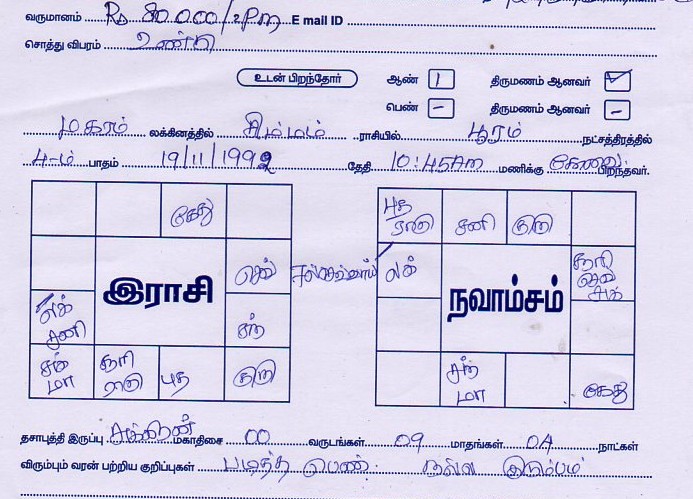 வருமானம் Rs 80.000/2pm E mail ID
சொத்து விபரம் உண்டு
உடன் பிறந்தோர் ஆண் 1 திருமணம் ஆனவர் ✓
பெண் - திருமணம் ஆனவர் -
மகரம் லக்கினத்தில் சிம்மம் ராசியில் பூரம் நட்சத்திரத்தில்
4-ம் பாதம் 19/11/1992 தேதி 10:45Am மணிக்கு பிறந்தவர்.
கேது
செவ்
இராசி
லக் சனி
சந்
சுக் மா
சூரி ராகு
புத
குரு
புத ராகு
சனி
குரு
லக்
சூரி செவ் சுக்
நவாம்சம்
சந் மா
கேது
தசாபுத்தி இருப்பு சுக்கிரன் மகாதிசை 00 வருடங்கள் 09 மாதங்கள் 04 நாட்கள்
விரும்பும் வரன் பற்றிய குறிப்புகள் படித்த பெண் நல்ல குடும்பம்